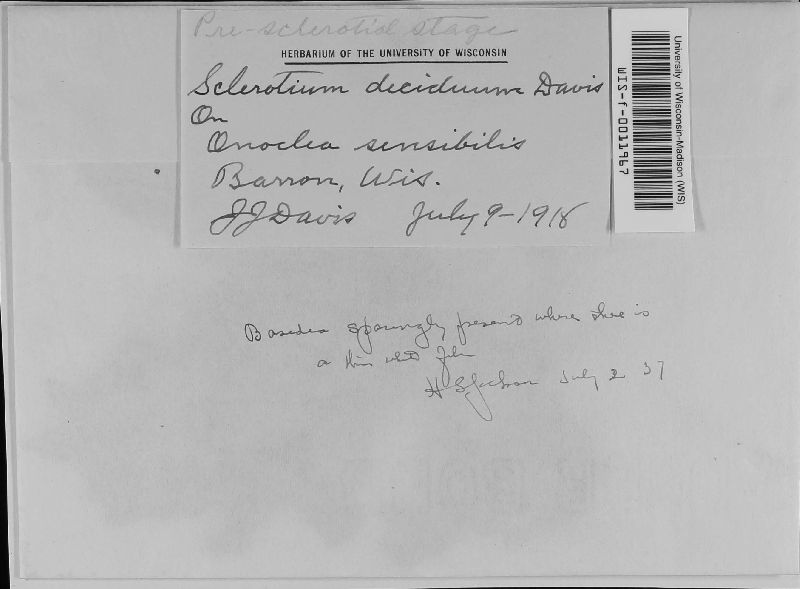 Pre-sclerotial stage
HERBARIUM OF THE UNIVERSITY OF WISCONSIN
Sclerotium deciduum Davis
On
Onoclea sensibilis
Barron, Wis.
JJ Davis July 9-1918
University of Wisconsin-Madison (WIS)
WIS-f-0011967
Basidia sparingly present where there is
a thin white film
H S Jackson July 2 37